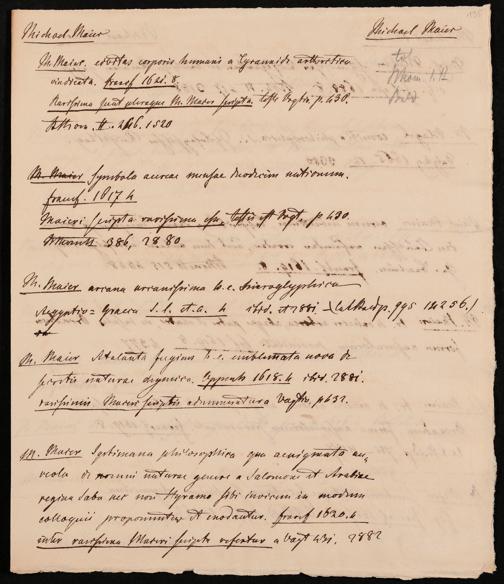 Michael Maier
Michael Maier
M. Maier, civitas corporis humani a Tyrannide arthritica
vindicata. francf 1621. 8.
Rarissima sunt pleraque M. Maier scripta. teste Vogtio p. 430.
M. Maier Symbola aureae mensae duodecim nationum.
francf. 1617 4
Maieri scripta rarissima esse, testis est Vogt. p. 430.
386, 2880.
M. Maier arcana arcanissima h. e. hieroglyphica
Aegyptio = Graeca S. l. et a. 4 ibid. et 2881
M. Maier Atalanta fugiens h. e. emblemata nova de
secretis naturae chymica. Oppenh 1618. 4 ibid. 2881.
rarissimis Maieri scriptis adnumeratur a Vogtio, p 432.
M. Maier Septimana philosophica qua aenigmata au,
reola de omni naturae genere a Salomone et Arabiae
regina Saba nec non Hyramo sibi invicem in modum
colloquii proponuntur et enodantur. francf 1620. 4
inter rarissima Maieri scripta refertur a Vogt 431. 2882